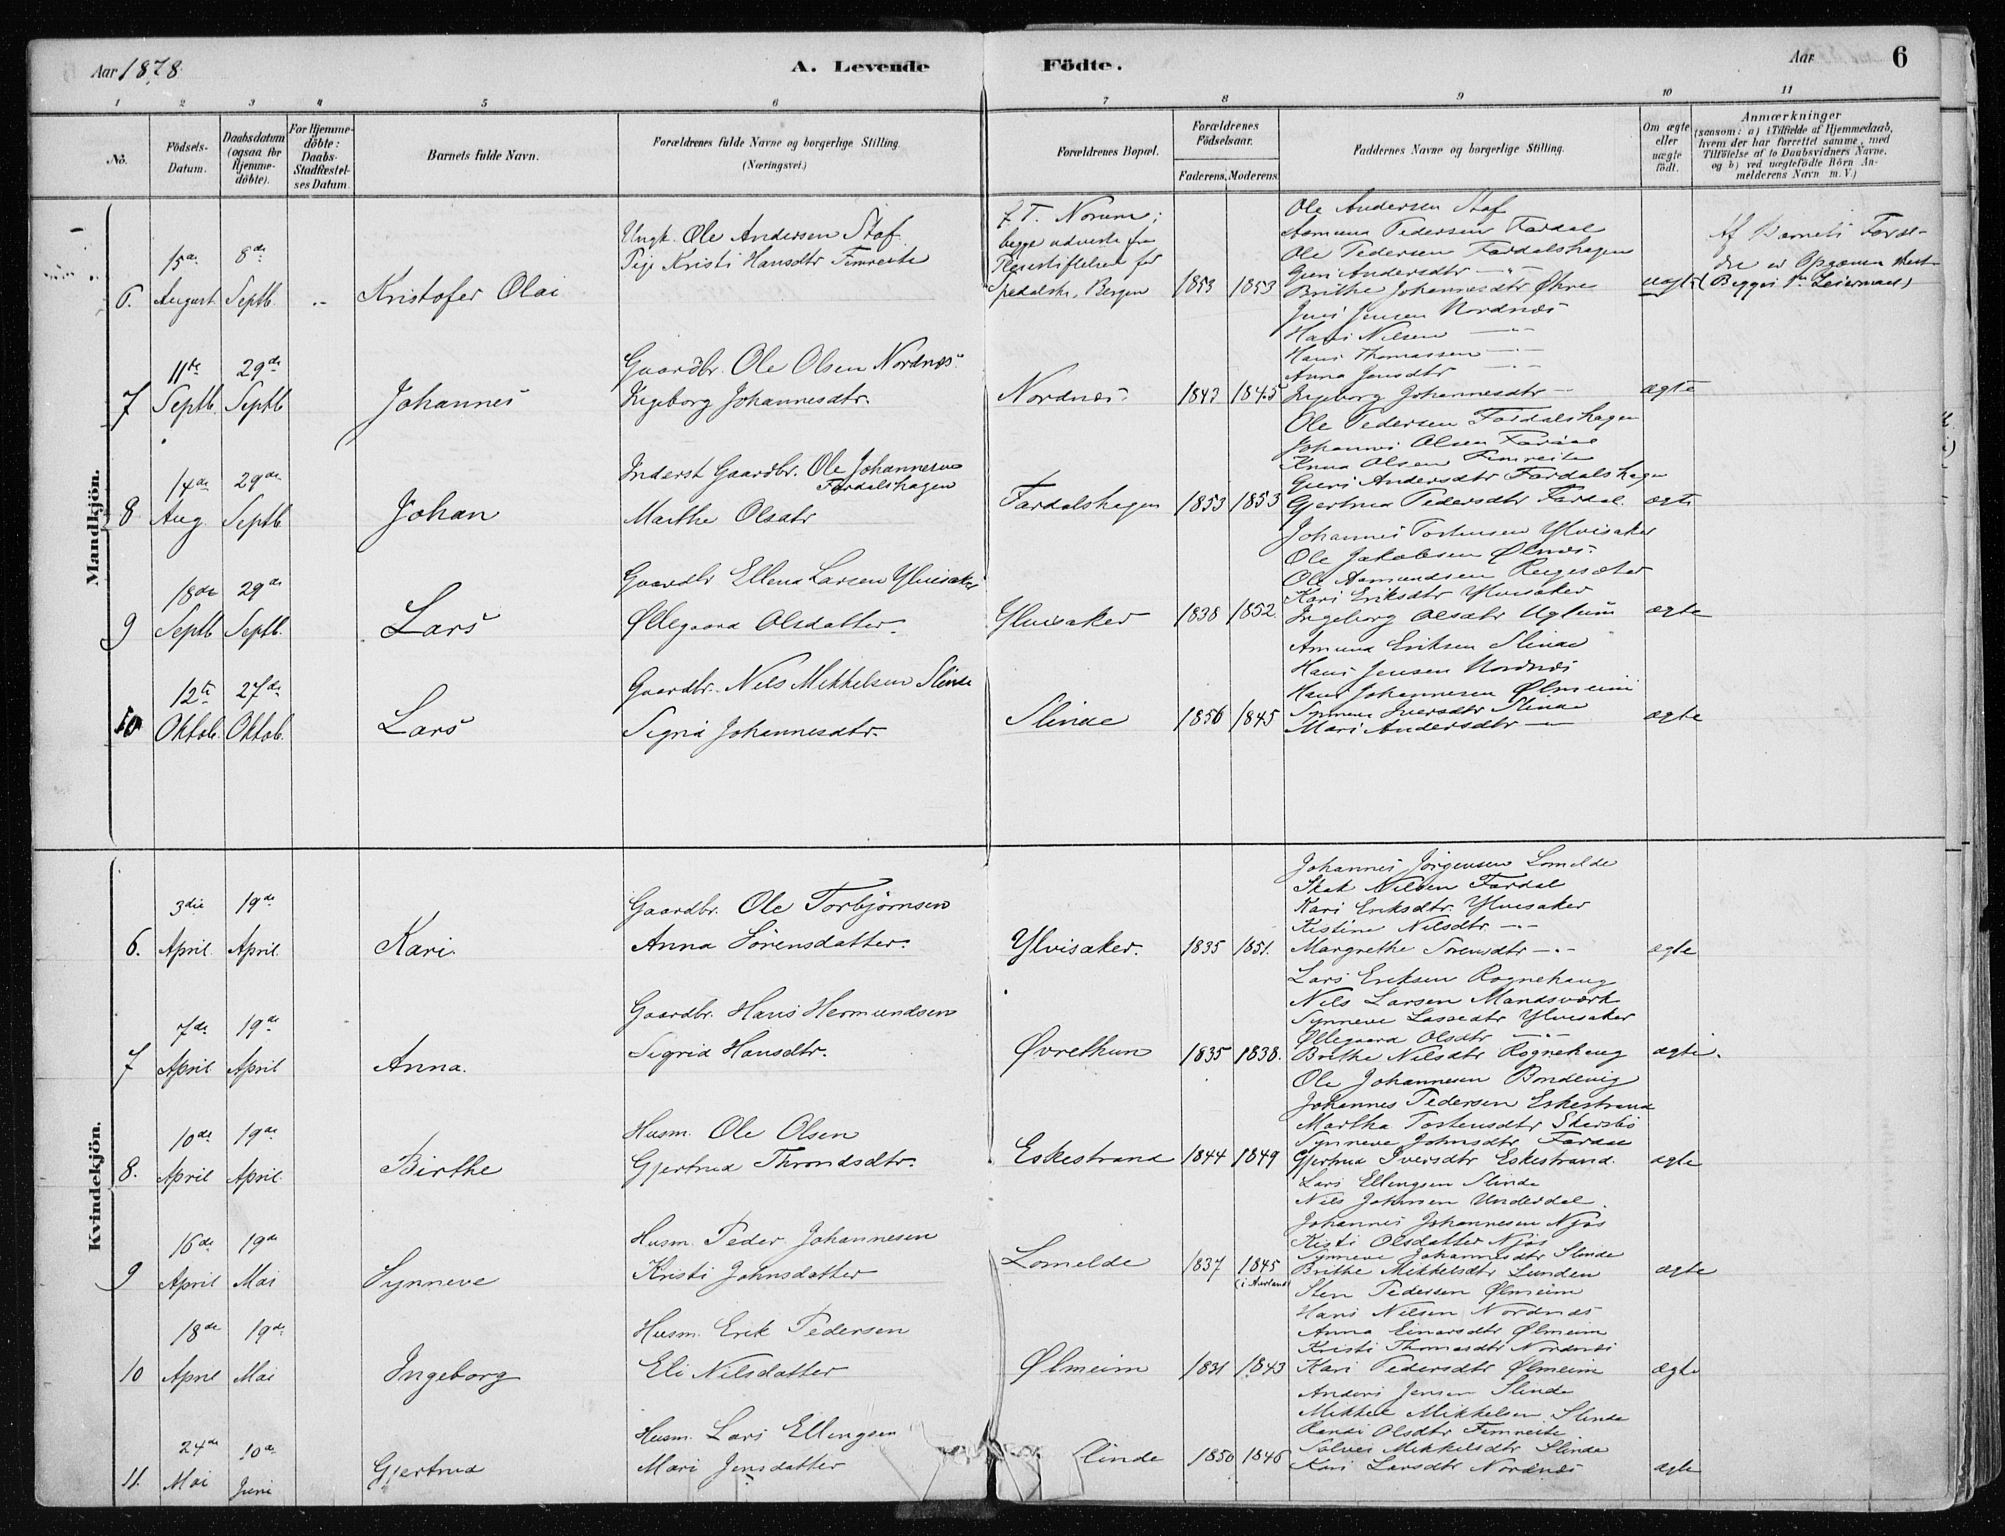 Aar 1878. A. Levende Födte. Aar 6
1 2 3 4 5 6 7 8 9 10 11
No. Födsels-Datum. Daabsdatum (ogsaa for Hjemme-döbte). For Hjemme-döbte: Daabs-Stadfæstelses Datum. Barnets fulde Navn. Forældrenes fulde Navne og borgerlige Stilling. (Næringsvei.) Forældrenes Bopæl. Forældrenes Födselsaar. Faderens. Moderens. Faddernes Navne og borgerlige Stilling. Om ægte eller uægte födt. Anmærkninger (saasom: a) i Tilfælde af Hjemmedaab, hvem der har forrettet samme, med Tilföielse af to Daabsvidners Navne. og b) ved uægtefödte Börn Anmelderens Navn m. V.)
Mandkjön.
6. 15de August 8de Septb. Kristofer Olai
Ungk. Ole Andersen Staf.
Pige Kristi Hansdtr Fimreite
Z. T. Norum;
begge udviste fra
Pleiestiftelsen for
spedalske, Bergen
1853 1853
Ole Andersen Staf
Aamund Pedersen Fardal
Ole Pedersen Fardalshagen
Guri Andersdtr —"—
Brithe Johannesdtr Økre
uægte
Af Barnets Foræl-
dre er
(Begges 1ste Leiermaal)
7 11te Septb. 29de Septb. Johannes
Gaardbr. Ole Olsen Nordnæs.
Ingeborg Johannesdtr.
Nordnæs 1842 1845
Jens Jensen Nordnæs
Hans Nilsen —"—
Hans Thomassen —"—
Anna Jensdtr —"—
Ingeborg Johannesdtr —
ægte
8 14de Aug. 29de Septb Johan
Inderst Gaardbr. Ole Johannesen
Fardalshagen
Marthe Olsdtr
Fardalshagen 1853 1853
Ole Pedersen Fardalshagen
Johannes Olsen Fardal
Knud Olsen Fimreite
Guri Andersdtr Fardalshagen
Gjertrud Pedersdtr Fardal.
ægte
9 18de Septb 29de Septb. Lars
Gaardbr Elleng Larsen Ylvisaker
Øllegaard Olsdatter.
Ylvisaker 1838 1852.
Johannes Torstensen Ylvisaker
Ole Jakobsen Ølnæs.
Ole Aamundsen Rugesæter
Kari Eriksdtr Ylvisaker
Ingeborg Olsdtr Uglum
ægte
10 12te Oktob. 27de Oktob. Lars
Gaardbr. Nils Mikkelsen Slinde
Sigrid Johannesdtr.
Slinde 1856 1845
Amund Eriksen Slinde
Hans Jensen Nordnæs
Hans Johannesen Ølmeim
Synneve Iversdtr Slinde
Mari Andersdtr —"—
ægte
Kvindekjön.
6. 3die April. 19de April. Kari.
Gaardbr. Ole Torbjørnsen
Anna Sørensdatter.
Ylvisaker. 1835 1851.
Johannes Jørgensen Lomelde
Skak Nilsen Fardal
Kari Eriksdtr. Ylvisaker
Kistine Nilsdtr —"—
Margrethe Sørensdtr —"—
ægte
7 7de April 19de April Anna.
Gaardbr. Hans Hermundsen
Sigrid Hansdtr.
Øvrethun 1835 1838.
Lars Eriksen Rognehaug
Nils Larsen Mandsværk
Synneve Lassedtr Ylvisaker
Øllegaard Olsdtr —"—
Brithe Nilsdtr Rognehaug
ægte.
8. 10de April 19de April. Birthe
Husm. Ole Olsen
Gjertrud Throndsdtr.
Eskestrand 1844 1849
Ole Johannesen Bondevig
Johannes Pedersen Eskestrand
Martha Torstensdtr Skersbø
Synneve Johnsdtr Fardal
Gjertrud Iversdtr Eskestrand.
ægte
9 16de April 19de Mai Synneve
Husm. Peder Johannesen
Kristi Johnsdatter
Lomelde 1837 1845
(i Aurland)
Lars Ellingsen Slinde
Nils Johnsen Underdal.
Johannes Johannesen Njøs
Kisti Olsdatter Njøs
Synneve Johannesdtr Slinde
Brithe Mikkelsdtr Lunden
ægte
10 18de April 19de Mai Ingeborg
Husm. Erik Pedersen
Eli Nilsdatter
Ølmeim 1831 1843
Sten Pedersen Ølmeim
Hans Nilsen Nordnæs
Anna Einarsdtr Ølmeim
Kristi Thomasdtr Nordnæs
Kari Pedersdtr Ølmeim
ægte
11. 24de Mai 10de Juni Gjertrud
Husm. Lars Ellingsen
Mari Jensdatter
Slinde 1850 1846
Anders Jensen Slinde
Mikkel Mikkelsen Slinde
Randi Olsdtr Fimreite
Solvei Mikkelsdtr Slinde
Kari Larsdtr Nordnæs
ægte